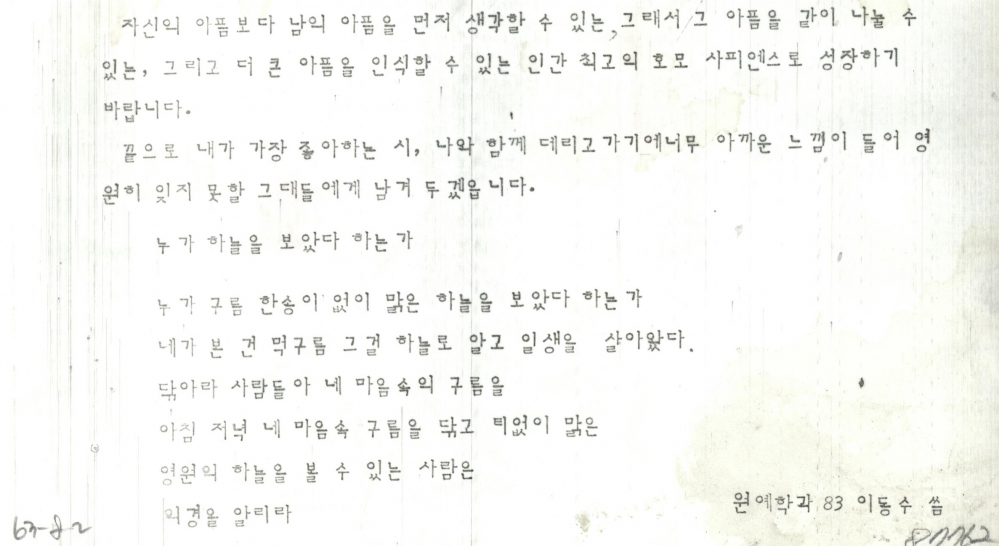 자신의 아픔보다 남의 아픔을 먼저 생각할 수 있는, 그래서 그 아픔을 같이 나눌 수
있는, 그리고 더 큰 아픔을 인식할 수 있는 인간 최고의 호모 사피엔스로 성장하기
바랍니다.
끝으로 내가 가장 좋아하는 시, 나와 함께 데리고가기에너무 아까운 느낌이 들어 영
원히 잊지 못할 그대들에게 남겨 두겠읍니다.
누가 하늘을 보았다 하는가
누가 구름 한송이 없이 맑은 하늘을 보았다 하는가
네가 본 건 먹구름 그걸 하늘로 알고 일생을 살아왔다.
닦아라 사람들아 네 마음속의 구름을
아침 저녁 네 마음속 구름을 닦고 티없이 맑은
영원의 하늘을 볼 수 있는 사람은
외경을 알리라
원예학과 83 이동수 씀
63-82